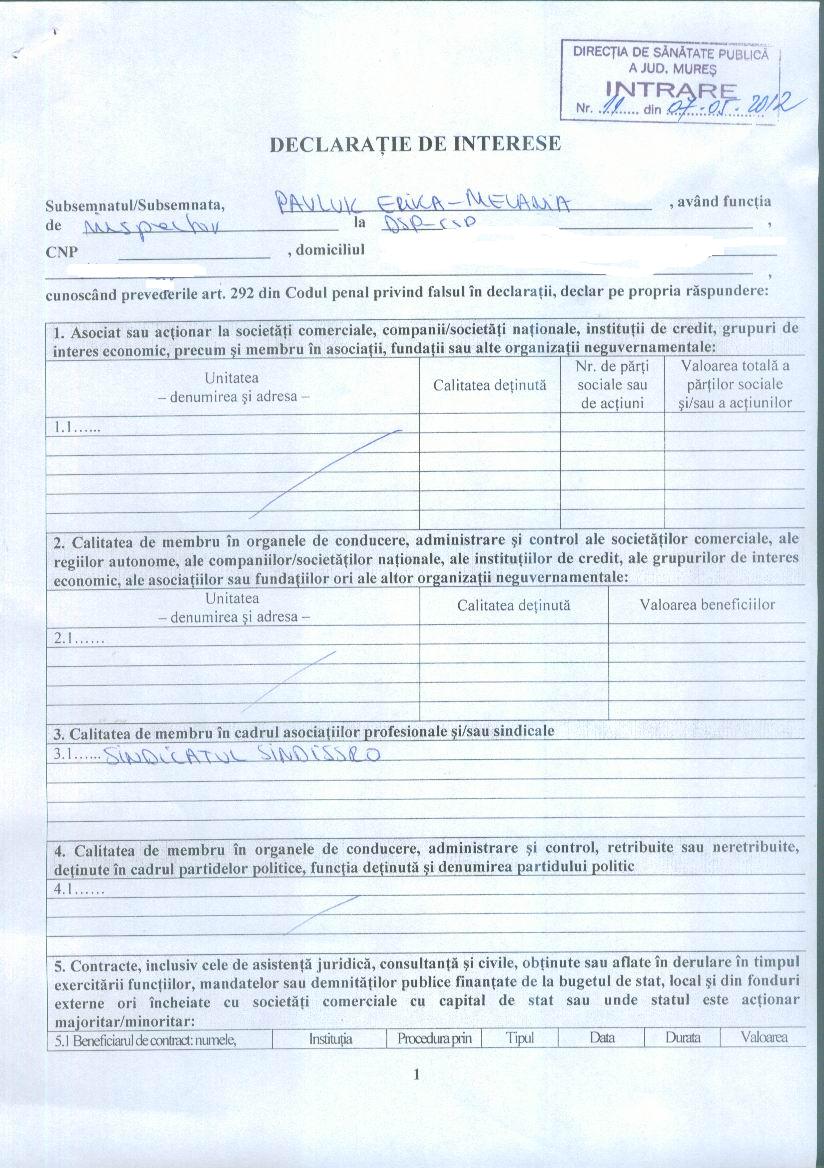 DIRECȚIA DE SĂNĂTATE PUBLICĂ
A JUD. MUREȘ
INTRARE
Nr. 11 din 07.05.2012
DECLARAȚIE DE INTERESE
Subsemnatul/Subsemnata, PAVLUK ERIKA-MELANIA, având funcția
de inspector la DSP-CSP,
CNP , domiciliul
,
cunoscând prevederile art. 292 din Codul penal privind falsul în declarații, declar pe propria răspundere:
1. Asociat sau acționar la societăți comerciale, companii/societăți naționale, instituții de credit, grupuri de
interes economic, precum și membru în asociații, fundații sau alte organizații neguvernamentale:
Unitatea
– denumirea și adresa –
Calitatea deținută
Nr. de părți
sociale sau
de acțiuni
Valoarea totală a
părților sociale
și/sau a acțiunilor
1.1......
2. Calitatea de membru în organele de conducere, administrare și control ale societăților comerciale, ale
regiilor autonome, ale companiilor/societăților naționale, ale instituțiilor de credit, ale grupurilor de interes
economic, ale asociațiilor sau fundațiilor ori ale altor organizații neguvernamentale:
Unitatea
– denumirea și adresa –
Calitatea deținută
Valoarea beneficiilor
2.1......
3. Calitatea de membru în cadrul asociațiilor profesionale și/sau sindicale
3.1...... SINDICATUL SINDISSRO
4. Calitatea de membru în organele de conducere, administrare și control, retribuite sau neretribuite,
deținute în cadrul partidelor politice, funcția deținută și denumirea partidului politic
4.1......
5. Contracte, inclusiv cele de asistență juridică, consultanță și civile, obținute sau aflate în derulare în timpul
exercitării funcțiilor, mandatelor sau demnităților publice finanțate de la bugetul de stat, local și din fonduri
externe ori încheiate cu societăți comerciale cu capital de stat sau unde statul este acționar
majoritar/minoritar:
5.1 Beneficiarul de contract: numele, Instituția Procedura prin Tipul Data Durata Valoarea
1